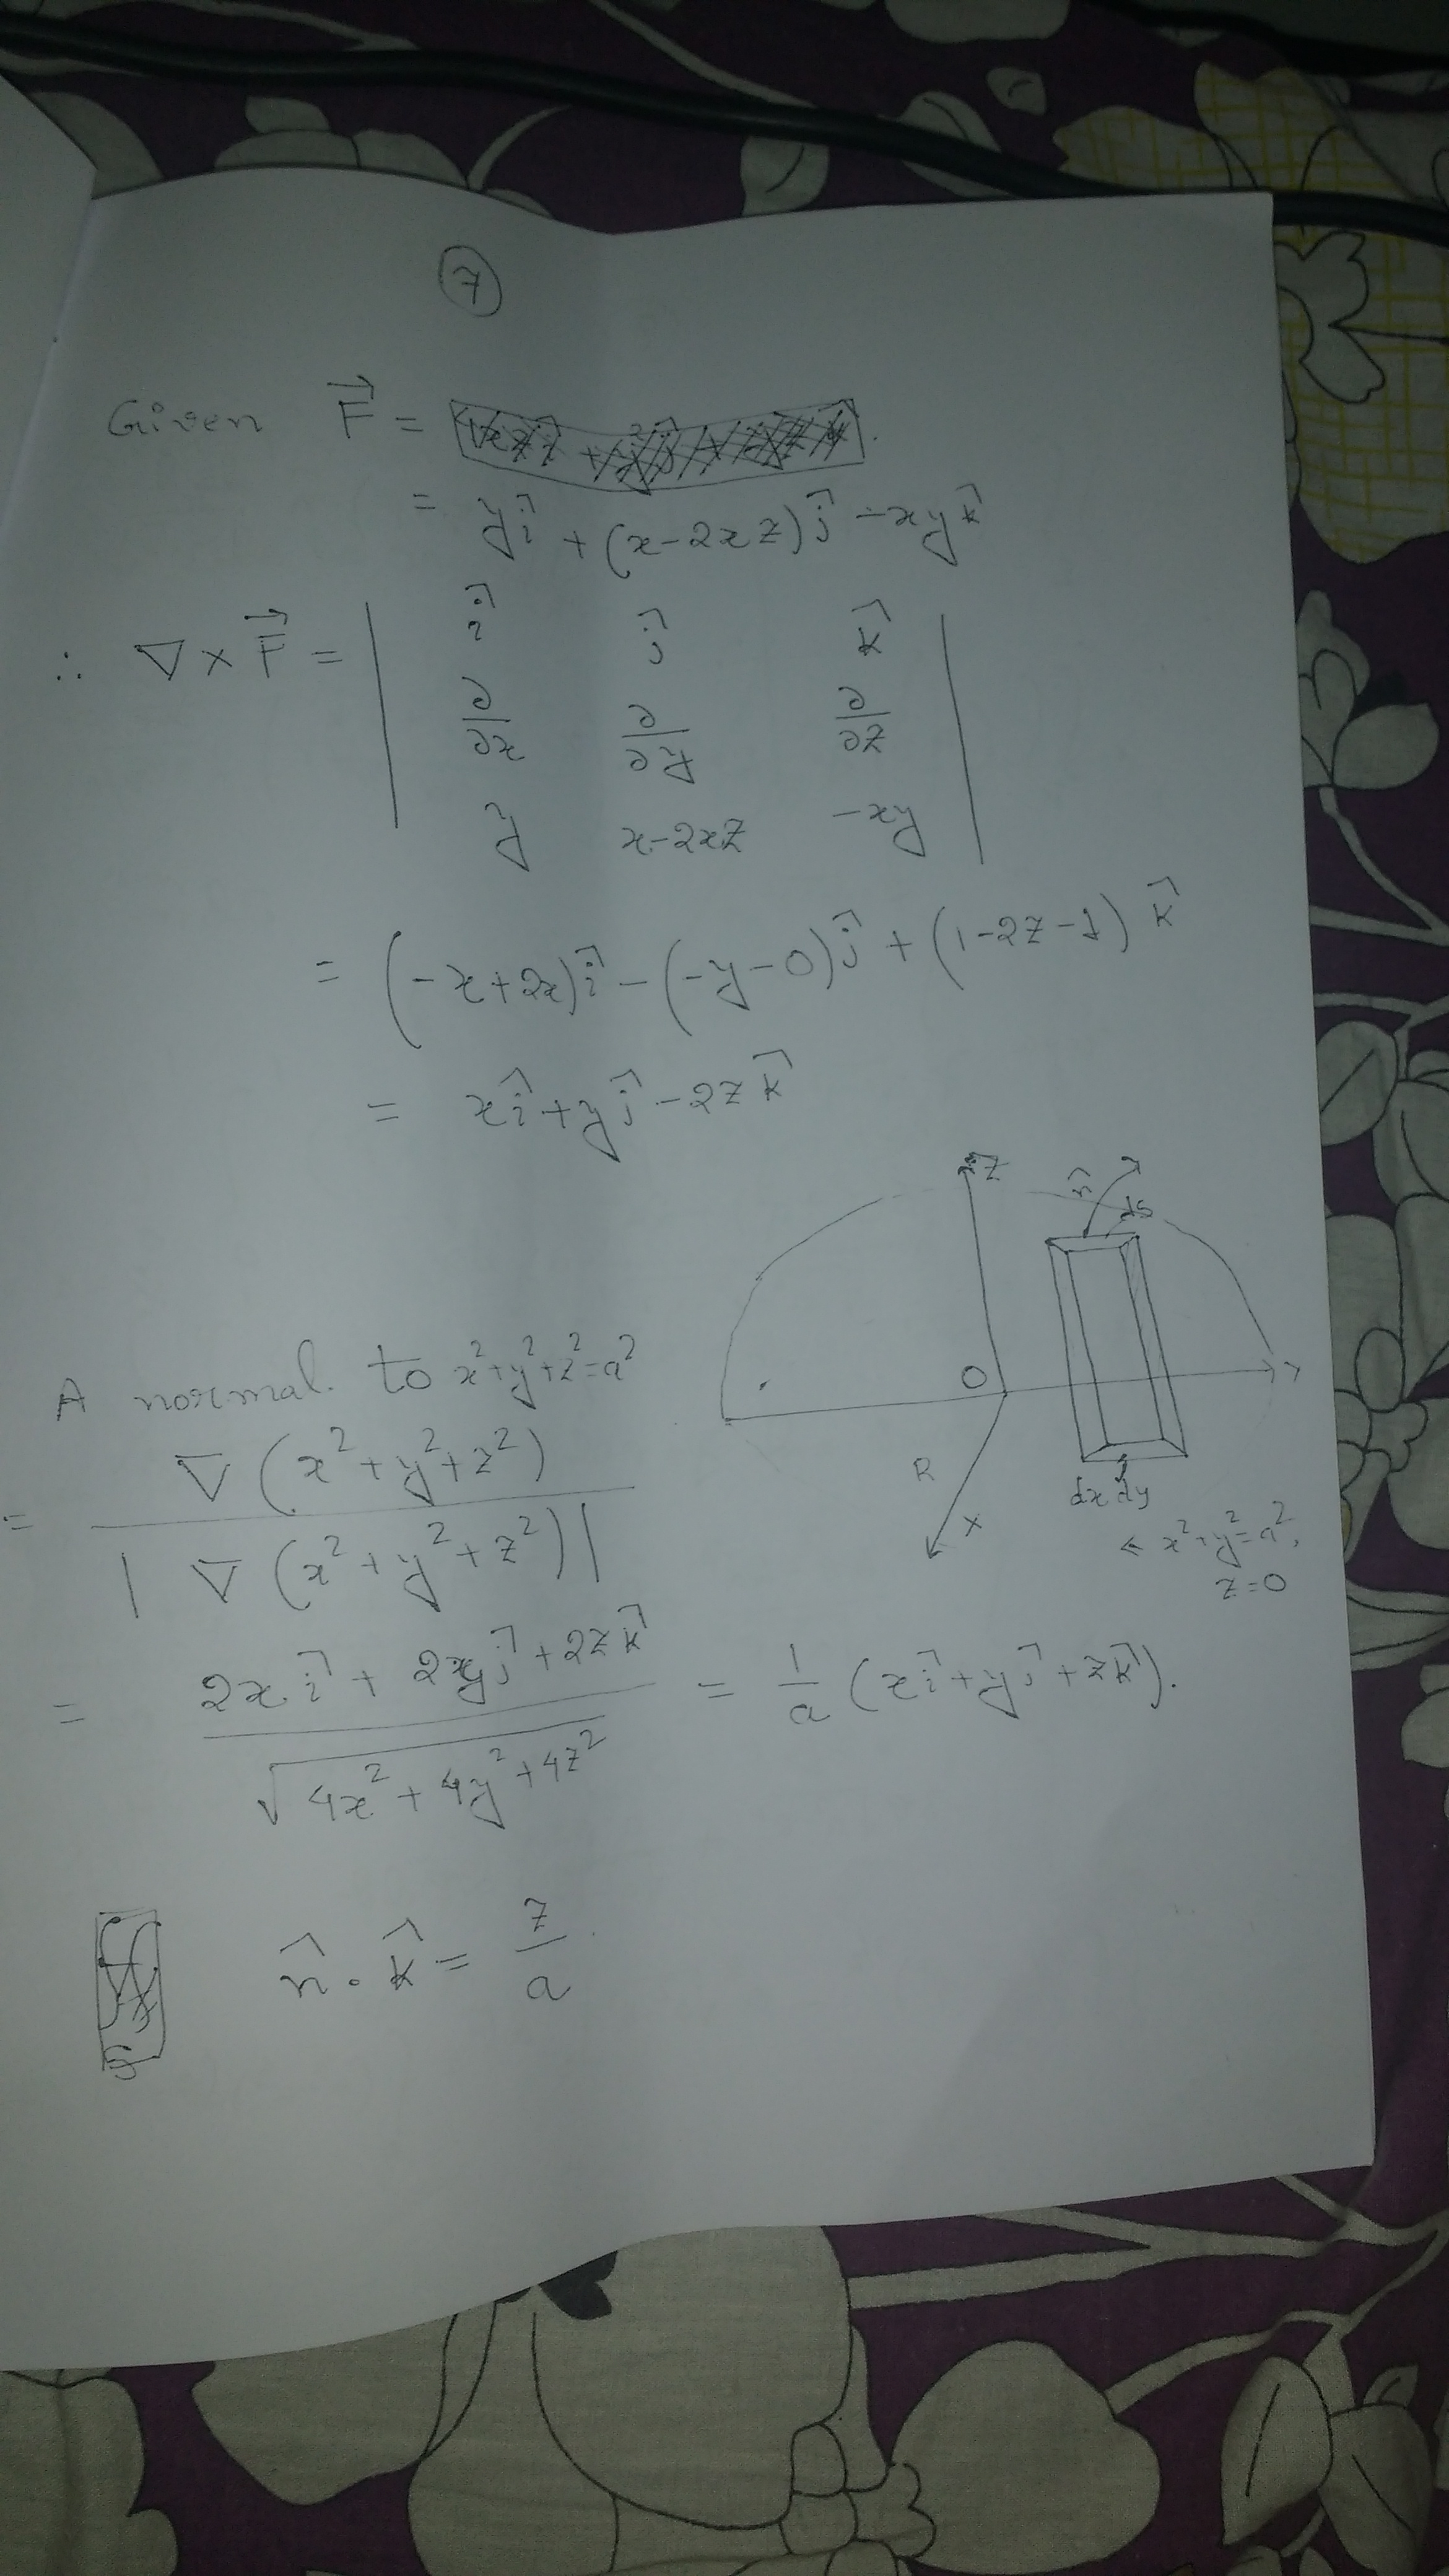 7
Given F⃗ =
= yî + (x-2xz)ĵ - xyk̂
∴ ∇ × F⃗ = | î ĵ k̂ |
∂/∂x ∂/∂y ∂/∂z
y x-2xz -xy
= (-x+2x)î - (-y-0)ĵ + (1-2z-1) k̂
= xî + yĵ - 2zk̂
Z
n̂
ds
O
Y
R
X
dx dy
← x²+y²=a²,
z=0
A normal to x²+y²+z²=a²
= ∇(x²+y²+z²) / |∇(x²+y²+z²)|
= 2xî + 2yĵ + 2zk̂ / √4x²+4y²+4z² = 1/a (xî+yĵ+zk̂).
n̂ · k̂ = z/a